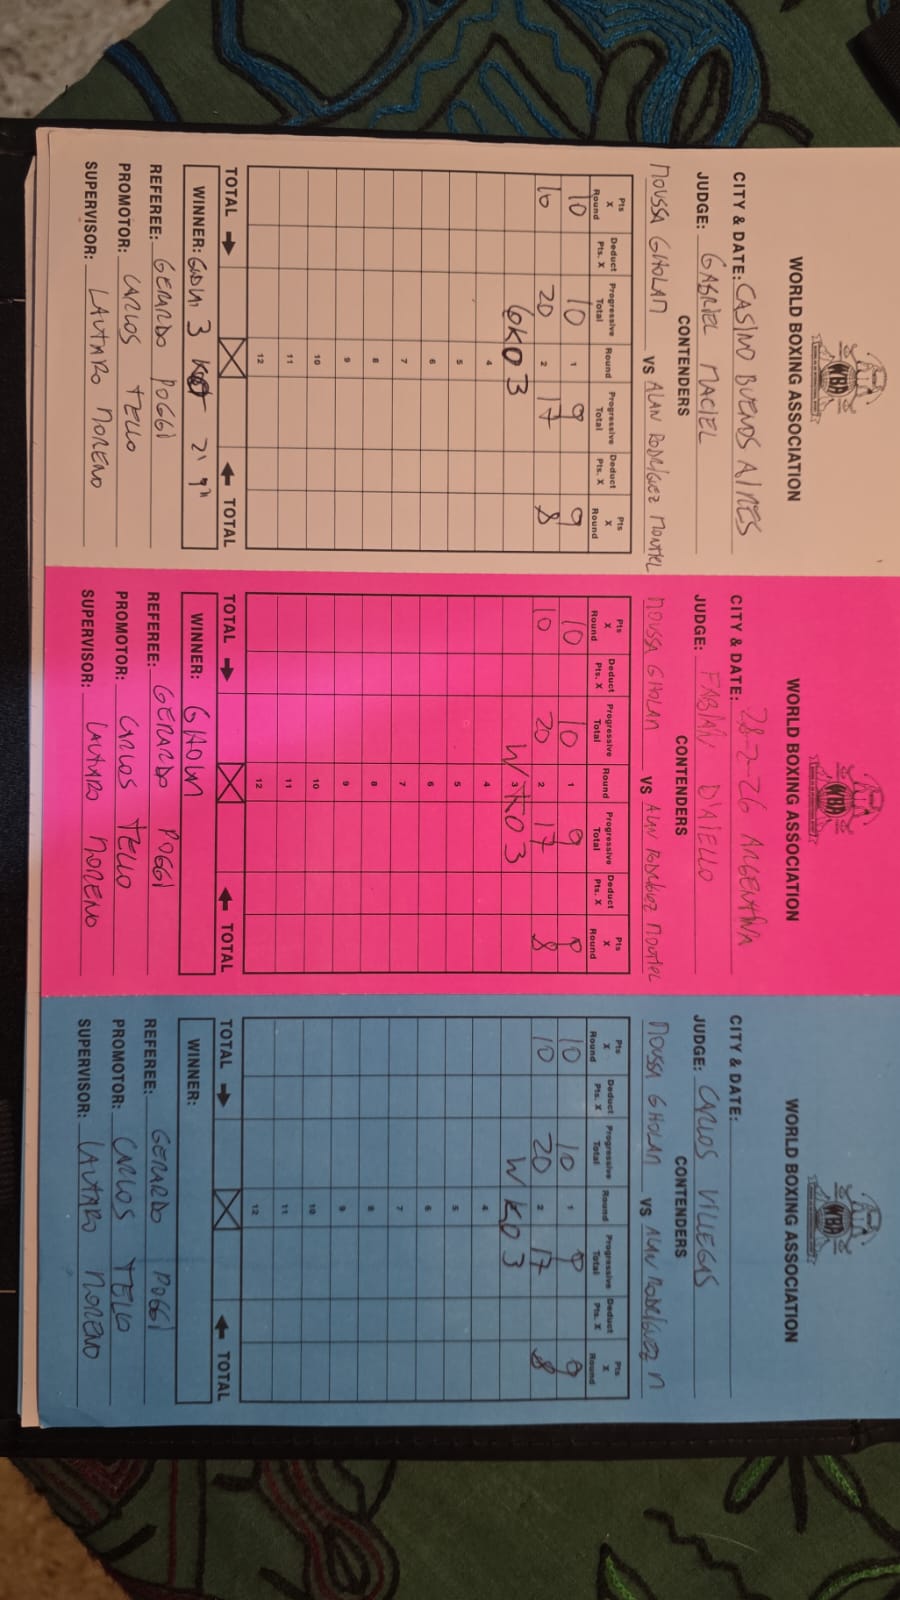 WBA
WORLD BOXING ASSOCIATION
CITY & DATE: CASINO BUENOS AIRES
JUDGE: GABRIEL MACIEL
CONTENDERS
MOUSSA GHOLAM VS ALAN RODRIGUEZ MONTIEL
Pts X Round Deduct Pts. X Progressive Total Round Progressive Total Deduct Pts. X Pts X Round
10 10 1 9 9
10 20 2 17 8
GKO 3
4
5
6
7
8
9
10
11
12
TOTAL TOTAL
WINNER: 3 2' 9"
REFEREE: GERARDO POGGI
PROMOTOR: CARLOS TELLO
SUPERVISOR: LAUTARO MORENO
WBA
WORLD BOXING ASSOCIATION
CITY & DATE: 28-2-26 ARGENTINA
JUDGE: FABIAN D'AIELLO
CONTENDERS
MOUSSA GHOLAM VS ALAN RODRIGUEZ MONTIEL
Pts X Round Deduct Pts. X Progressive Total Round Progressive Total Deduct Pts. X Pts X Round
10 10 1 9 9
10 20 2 17 8
W KO 3
4
5
6
7
8
9
10
11
12
TOTAL TOTAL
WINNER: GHOLAM
REFEREE: GERARDO POGGI
PROMOTOR: CARLOS TELLO
SUPERVISOR: LAUTARO MORENO
WBA
WORLD BOXING ASSOCIATION
CITY & DATE:
JUDGE: CARLOS VILLEGAS
CONTENDERS
MOUSSA GHOLAM VS ALAN RODRIGUEZ M
Pts X Round Deduct Pts. X Progressive Total Round Progressive Total Deduct Pts. X Pts X Round
10 10 1 9 9
10 20 2 17 8
W KO 3
4
5
6
7
8
9
10
11
12
TOTAL TOTAL
WINNER:
REFEREE: GERARDO POGGI
PROMOTOR: CARLOS TELLO
SUPERVISOR: LAUTARO MORENO